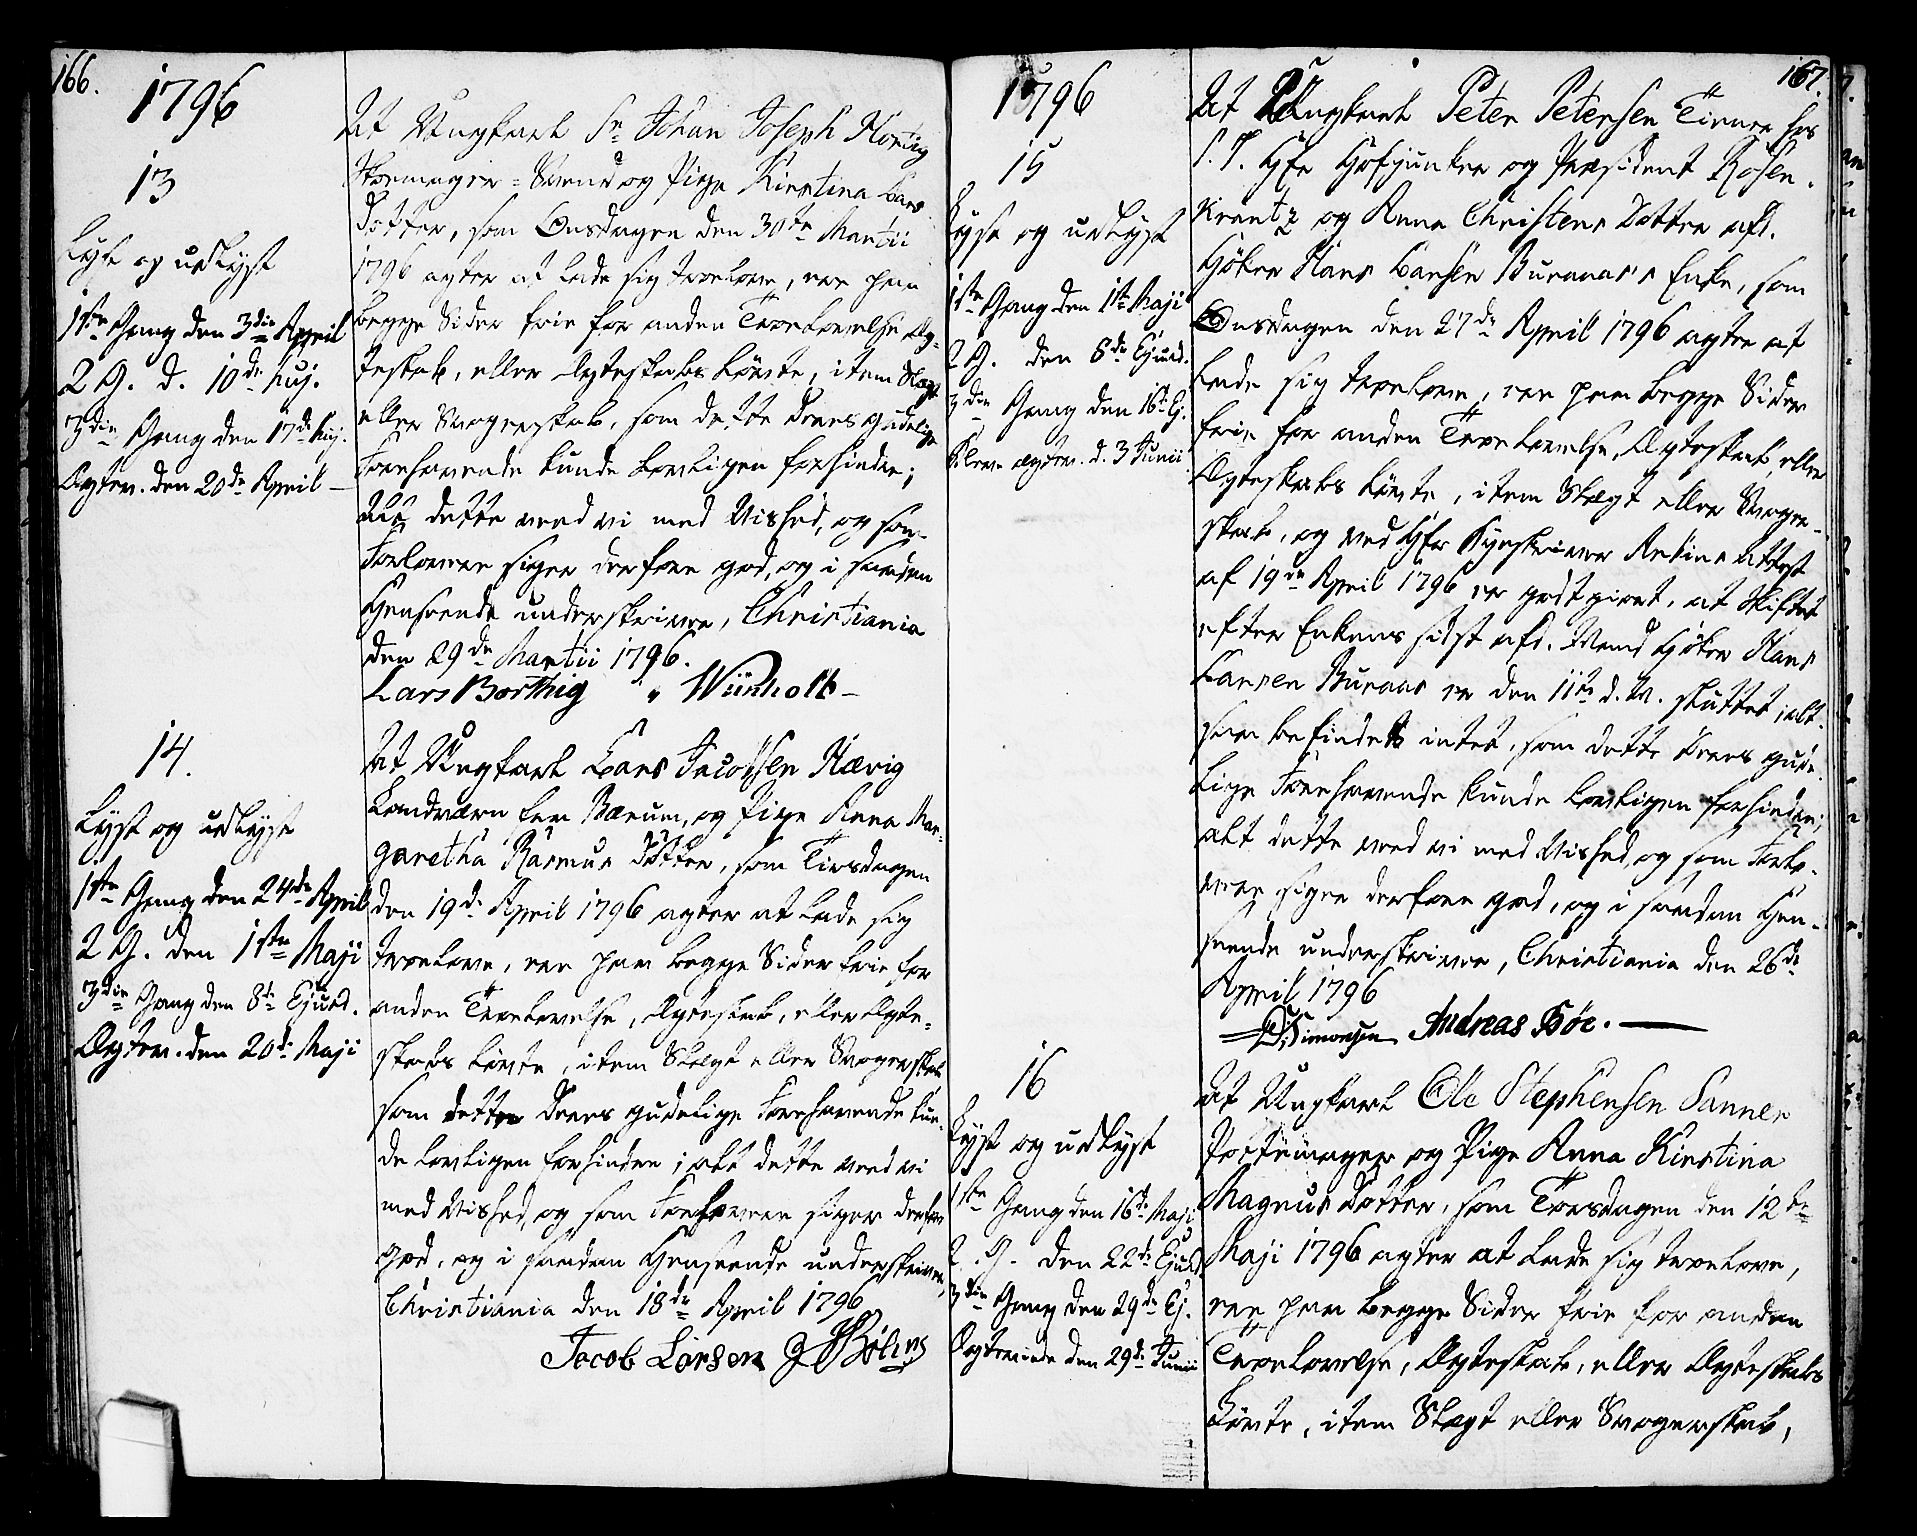 166.
1796
13
Lyst og udlyst
1ste Gang den 3die April
2 G. d. 10de huj.
3die Gang den 17de huj.
Ægtev. den 20de April –
At Ungkarl Sr Johan Joseph Hortig
Skoemager-Svend og Pige Kirstina Lars
Dotter, som Onsdagen den 30te Martii
1796 agter at lade sig troelove, ere paa
begge Sider frie for anden Troelovelse, Æg-
teskab, eller Ægteskabs Løvte, item Slægt
eller Svogerskab, som dette Deres gudelige
Forehavende kunde lovligen forhindre;
Alt dette veed vi med Vished, og som
Forlovere siger derfore god, og i saadan
Henseende underskrive, Christiania
den 29de Martii 1796.
Lars Borthig Wiinholt –
14.
Lyst og udlyst
1ste Gang den 24de April
2 G. den 1ste Maji
3die Gang den 8de Ejusd.
Ægtev. den 20de Maji
At Ungkarl Lars Jacobsen Hævig
Landværn fra Bærum, og Pige Anna Mar-
garetha Rasmus Dotter, som Tirsdagen
den 19de April 1796 agter at lade sig
troelove, ere paa begge Sider frie for
anden Troelovelse, Ægteskab, eller Ægte-
skabs Løvte, item Slægt eller Svogerskab
som dette Deres gudelige Forehavende kun-
de lovligen forhindre; alt dette veed vi
med Vished, og som Forlovere siger derfore
god, og i saadan Henseende underskrive,
Christiania den 18de April 1796
Jacob Larsen
1796
15
Lyst og udlyst
1ste Gang den 1ste Maji
2 G. den 8de Ejusd.
3die Gang den 16de Ej.
bleve ægtev. d. 3 Junii
167.
At Ungkarl Peter Petersen Tiener hos
S. T. Hr Hofjunker og Præsident Rosen-
krantz og Anna Christens Dotter afd.
Høker Hans Larsen Buraas's Enke, som
Onsdagen den 27de April 1796 agter at
lade sig troelove, ere paa begge Sider
frie for anden Troelovelse, Ægteskab, eller
Ægteskabs Løvte, item Slægt eller Svoger-
skab, og ved Hr Byeskriver Attest
af 19de April 1796 er godtgiort, at Skiftet
efter Enkens sidst afd. Mand Høker Hans
Larsen Buraas er den 11te d. M. sluttet, alt-
saa befindes intet, som dette Deres gude-
lige Forehavende kunde lovligen forhindre;
alt dette veed vi med Vished, og som Forlo-
vere siger derfore god, og i saadan Hen-
seende underskrive, Christiania den 26de
April 1796
Simonsen Andreas Bøe. –
16
Lyst og udlyst
1ste Gang den 16de Maji
2. G. den 22de Ejusd.
3die Gang den 29de Ej.
Ægteviede den 29de Junii
At Ungkarl Ole Stephensen Sanner
Pottemager og Pige Anna Kirstina
Magnus Dotter, som Torsdagen den 12te
Maji 1796 agter at lade sig troelove,
ere paa begge Sider frie for anden
Troelovelse, Ægteskab, eller Ægteskabs
Løvte, item Slægt eller Svogerskab,